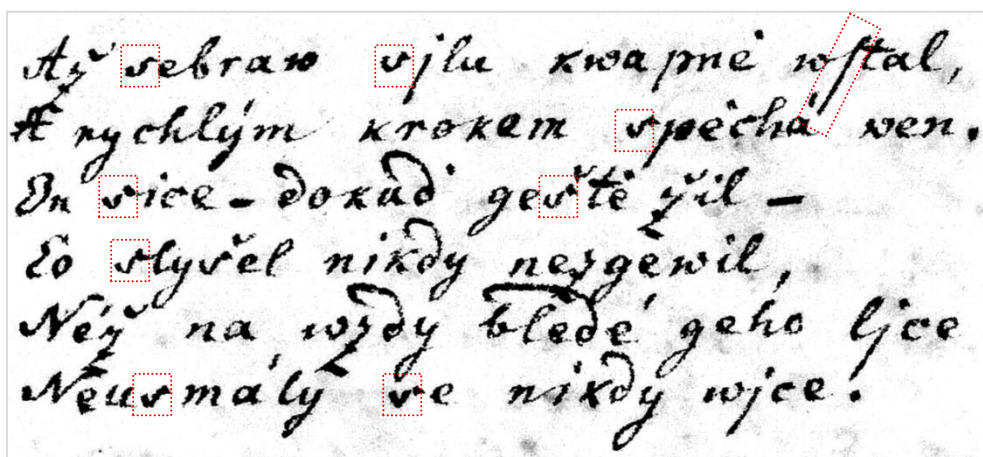 Až sebraw sjlu kwapně wſtal,
A rychlým krokem spěchá wen.
On sice – dokud geště žil –
Co slyšel nikdy nezgewil,
Něž na wždy bledé geho ljce
Neusmály se nikdy wjce.